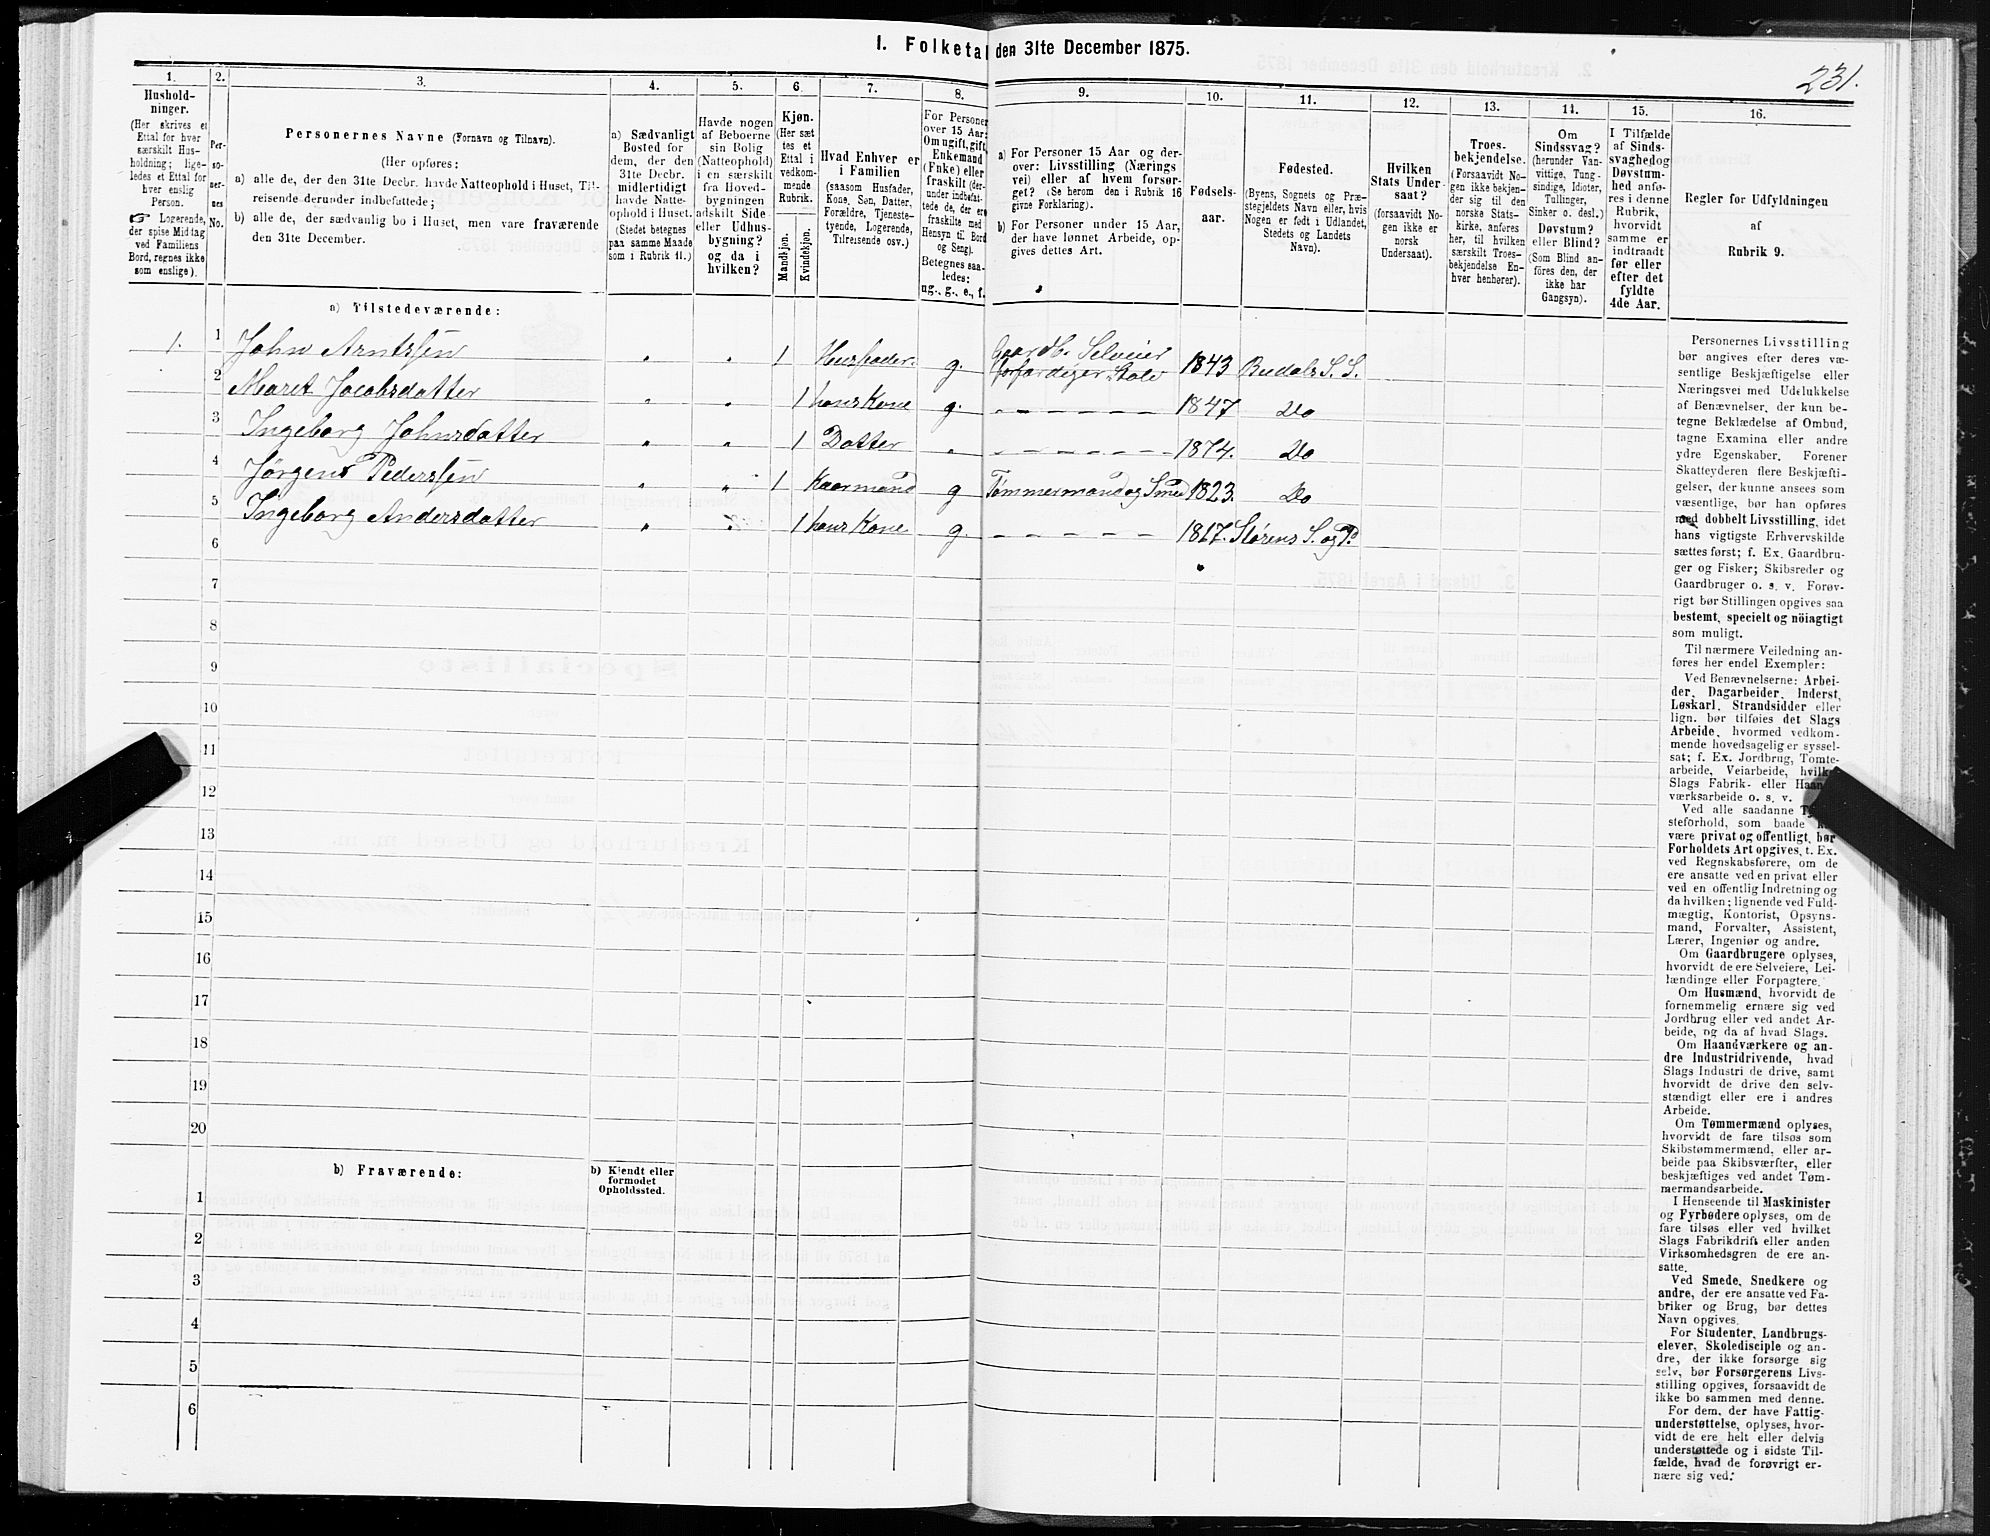 I. Folketal den 31te December 1875.
231.
1.
Hushold-
ninger.
(Her skrives et
Ettal for hver
særskilt Hus-
holdning; lige-
ledes et Ettal for
hver enslig
Person.
☞ Logerende,
der spise Middag
ved Familiens
Bord, regnes ikke
som enslige).
2.
Per-
so-
ner-
nes
No.
3.
Personernes Navne (Fornavn og Tilnavn).
(Her opføres:
a) alle de, der den 31te Decbr. havde Natteophold i Huset, Til-
reisende derunder indbefattede;
b) alle de, der sædvanlig bo i Huset, men vare fraværende
den 31te December.
4.
a) Sædvanligt
Bosted for
dem, der den
31te Decbr.
midlertidigt
havde Natte-
ophold i Huset.
(Stedet betegnes
paa samme Maade
som i Rubrik 11.)
5.
Havde nogen
af Beboerne
sin Bolig
(Natteophold)
i en særskilt
fra Hoved-
bygningen
adskilt Side-
eller Udhus-
bygning?
og da i
hvilken?
6.
Kjøn.
(Her sæt
tes et
Ettal i
vedkom-
mende
Rubrik.
Mandkjøn.
Kvindekjøn.
7.
Hvad Enhver er
i Familien
(saasom Husfader,
Kone, Søn, Datter,
Forældre, Tjeneste-
tyende, Logerende,
Tilreisende osv.)
8.
For Personer
over 15 Aar:
Om ugift, gift,
Enkemand
(Enke) eller
fraskilt (der-
under indbefat-
tede de, der ere
fraskilte med
Hensyn til Bord
og Seng).
Betegnes saa-
ledes:
ug., g., e., f.
9.
a) For Personer 15 Aar og der-
over: Livsstilling (Nærings
vei) eller af hvem forsør-
get? (Se herom den i Rubrik 16
givne Forklaring).
b) For Personer under 15 Aar,
der have lønnet Arbeide, op-
gives dettes Art.
10.
Fødsels-
aar.
11.
Fødested.
(Byens, Sognets og Præ-
stegjeldets Navn eller, hvis
Nogen er født i Udlandet,
Stedets og Landets
Navn).
12.
Hvilken
Stats Under-
saat?
(forsaavidt No-
gen ikke er
norsk
Undersaat).
13.
Troes-
bekjendelse.
(Forsaavidt No-
gen ikke bekjen-
der sig til den
norske Stats-
kirke, anføres
her, til hvilken
særskilt Troes-
bekjendelse En-
hver henhører).
14.
Om
Sindssvag?
(herunder Van-
vittige, Tung-
sindige, Idioter,
Tullinger,
Sinker o. desl.)
Døvstum?
eller Blind?
(Som Blind an-
føres den, der
ikke har
Gangsyn).
15.
I Tilfælde
af Sinds-
svaghed og
Døvstum-
hed anfø-
res i denne
Rubrik,
hvorvidt
samme er
indtraadt
før eller
efter det
fyldte
4de Aar.
16.
Regler for Udfyldningen
af
Rubrik 9.
a) Tilstedeværende:
1. 1 John Arntssen „ „ 1 Husfader. g. Gaardb. Selveier forfærdiger Stole 1843 Budals S. S.
2 Maret Jacobsdatter „ „ 1 hans Kone g. „ – – – – – 1847 Do
3 Ingeborg Johnsdatter „ „ 1 Datter „ – – – – – – 1874. Do
4 Jørgen Pederssen „ „ 1 Kaarmand g Tømmermand og Smed 1823. Do
5 Ingeborg Andersdatter „ „ 1 hans Kone g. – – – – – 1817. Størens S. og P.
6
7
8
9
10
11
12
13
14
15
16
17
18
19
20
b) Fraværende:
b) Kjendt eller
formodet
Opholdssted.
1
2
3
4
5
6
Personernes Livsstilling
bør angives efter deres væ-
sentlige Beskjæftigelse eller
Næringsvei med Udelukkelse
af Benævnelser, der kun be-
tegne Beklædelse af Ombud,
tagne Examina eller andre
ydre Egenskaber. Forener
Skatteyderen flere Beskjæfti-
gelser, der kunne ansees som
væsentlige, bør han opføres
med dobbelt Livsstilling, idet
hans vigtigste Erhvervskilde
sættes først; f. Ex. Gaardbru-
ger og Fisker; Skibsreder og
Gaardbruger o. s. v. Forøv-
rigt bør Stillingen opgives saa
bestemt, specielt og nöiagtigt
som muligt.
Til nærmere Veiledning an-
føres her endel Exempler:
Ved Benævnelserne: Arbei-
der, Dagarbeider, Inderst,
Løskarl, Strandsidder eller
lign. bør tilføies det Slags
Arbeide, hvormed vedkom-
mende hovedsagelig er syssel-
sat; f. Ex. Jordbrug, Tomte-
arbeide, Veiarbeide, hvilket
Slags Fabrik- eller Haand-
værksarbeide o. s. v.
Ved alle saadanne Tjene-
steforhold, som baade kan
være privat og offentligt, bør
Forholdets Art opgives, t. Ex.
ved Regnskabsførere, om de
ere ansatte ved en privat eller
ved en offentlig Indretning og
da hvilken; lignende ved Fuld-
mægtig, Kontorist, Opsyns-
mand, Forvalter, Assistent,
Lærer, Ingeniør og andre.
Om Gaardbrugere oplyses,
hvorvidt de ere Selveiere, Lei-
lændinge eller Forpagtere.
Om Husmænd, hvorvidt de
fornemmelig ernære sig ved
Jordbrug eller ved andet Ar-
beide, og da af hvad Slags.
Om Haandværkere og an-
dre Industridrivende, hvad
Slags Industri de drive, samt
hvorvidt de drive den selv-
stændigt eller ere i andres
Arbeide.
Om Tømmermænd oplyses,
hvorvidt de fare tilsøs som
Skibstømmermænd, eller ar-
beide paa Skibsværfter, eller
beskjæftiges ved andet Tøm-
mermandsarbeide.
I Henseende til Maskinister
og Fyrbødere oplyses, om de
fare tilsøs eller ved hvilket
Slags Fabrikdrift eller anden
Virksomhedsgren de ere an-
satte.
Ved Smede, Snedkere og
andre, der ere ansatte ved Fa-
briker og Brug, bør dettes
Navn opgives.
For Studenter, Landbrugs-
elever, Skoledisciple og an-
dre, der ikke forsørge sig
selv, bør Forsørgerens Livs-
stilling opgives, forsaavidt de
ikke bo sammen med denne.
For dem, der have Fattig-
understøttelse, oplyses, hvor-
vidt de ere helt eller delvis
understøttede og i sidste Til-
fælde, hvad de forøvrigt er-
nære sig ved.